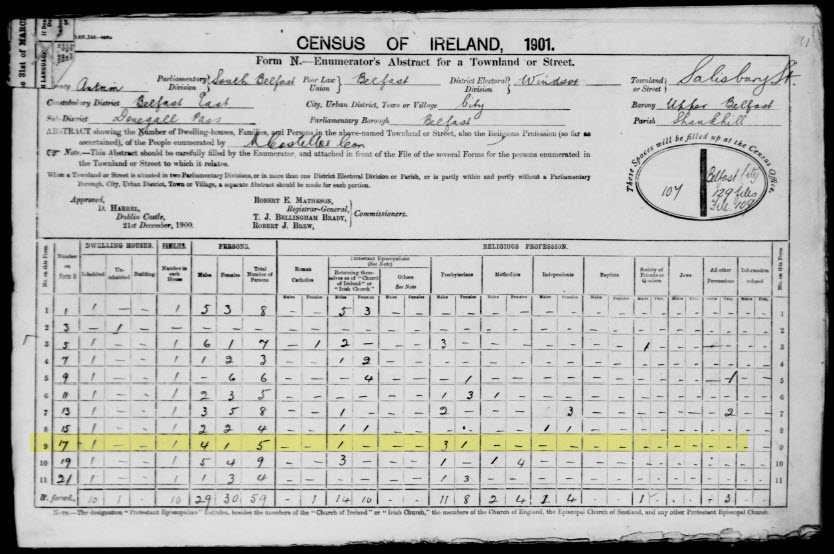 CENSUS OF IRELAND, 1901.
Form N.—Enumerator's Abstract for a Townland or Street.
Antrim Parliamentary Division South Belfast Poor Law Union Belfast District Electoral Division Windsor Townland or Street Salisbury St
Constabulary District Belfast East City, Urban District, Town or Village City Barony Upper Belfast
Sub-District Donegall Pass Parliamentary Borough Belfast Parish Shankhill
ABSTRACT showing the Number of Dwelling-houses, Families, and Persons in the above-named Townland or Street, also the Religious Profession (so far as
ascertained), of the People enumerated by
Note.—This Abstract should be carefully filled by the Enumerator, and attached in front of the File of the several Forms for the persons enumerated in
the Townland or Street to which it relates.
When a Townland or Street is situated in two Parliamentary Divisions, or in more than one District Electoral Division or Parish, or is partly within and partly without a Parliamentary
Borough, City, Urban District, Town or Village, a separate Abstract should be made for each portion.
These Spaces will be filled up at the Census Office.
107
Belfast City
129 files
File 109
Approved,
D. HARREL,
Dublin Castle,
21st December, 1900.
ROBERT E. MATHESON,
Registrar-General,
T. J. BELLINGHAM BRADY,
ROBERT J. BREW,
Commissioners.
DWELLING HOUSES. FAMILIES. PERSONS. RELIGIOUS PROFESSION.
No. on this Form Number on Form B Inhabited Un-inhabited Building Number in each House Males Females Total Number of Persons Roman Catholics Protestant Episcopalians (See Note) Returning themselves as of "Church of Ireland" or "Irish Church" Others See Note Presbyterians Methodists Independents Baptists Society of Friends or Quakers Jews All other Persuasions Information refused No. on this Form
1 1 1 – – 1 5 3 8 – – 5 3 – – – – – – – – – – – – – – – – – – 1
2 3 – 1 – – – – – – – – – – – – – – – – – – – – – – – – – 2
3 5 1 – – 1 6 1 7 – 1 2 – – – 3 – – – – – – – 1 – – – – – – – 3
4 7 1 – – 1 1 2 3 – – 1 2 – – – – – – – – – – – – – – – – – – 4
5 9 1 – – 1 – 6 6 – – – 4 – – – 1 – – – – – – – – – – – 1 – – 5
6 11 1 – – 1 2 3 5 – – – – – – 1 3 1 – – – – – – – – – – – – – 6
7 13 1 – – 1 3 5 8 – – 1 – – – 2 – – – – 3 – – – – – – – 2 – – 7
8 15 1 – – 1 2 2 4 – – 1 1 – – – – – – 1 1 – – – – – – – – – – 8
9 17 1 – – 1 4 1 5 – – 1 – – – 3 1 – – – – – – – – – – – – – – 9
10 19 1 – – 1 5 4 9 – – 3 – – – 1 – 1 4 – – – – – – – – – – – – 10
11 21 1 – – 1 1 3 4 – – – – – – 1 3 – – – – – – – – – – – – – – 11
B. forwd. 10 1 – 10 29 30 59 – 1 14 10 – – 11 8 2 4 1 4 – – 1 – – – – 3 – –
NOTE.—The designation "Protestant Episcopalian" includes, besides the members of the "Church of Ireland" or "Irish Church," the members of the Church of England, the Episcopal Church of Scotland, and any other Protestant Episcopal Church.